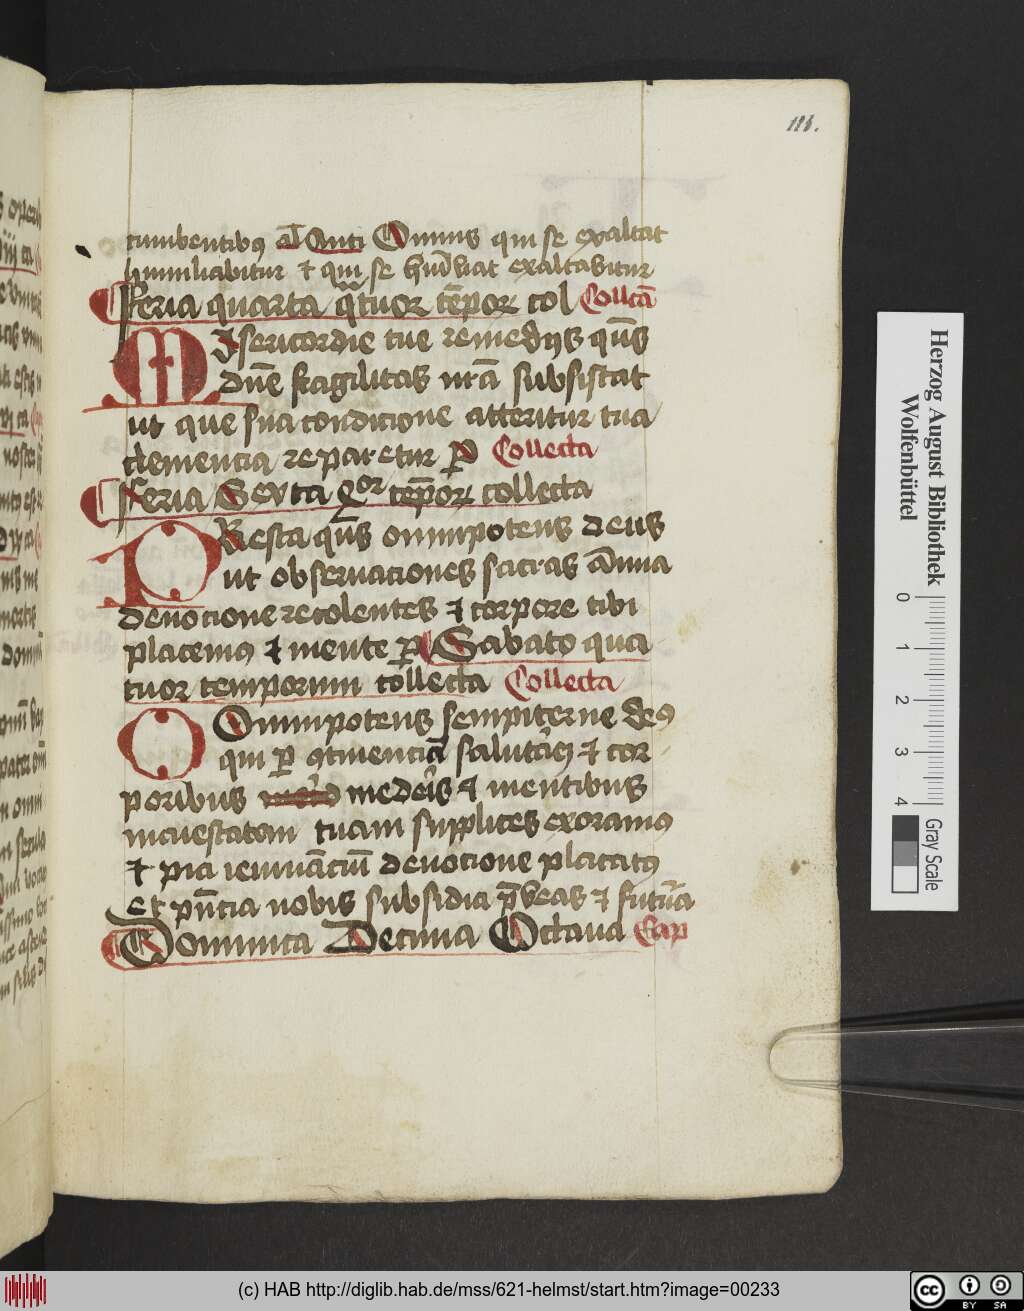 116.
cumbentibus a͞l Anti Omnis qui se exaltat
humiliabitur et qui se hu͞iliat exaltabitur
Feria quarta q͞tuor te͞por col Collca͞
Misericordie tue remedijs que͞s
dn͞e fragilitas nr͞a subsistat
ut que sua condicione atteritur tua
clemencia reparetur ꝑ Collecta
Feria Sexta qor te͞por collecta
PResta que͞s omnipotens deus
ut obseruaciones sacras a͞nua
deuocione recolentes et corpore tibi
placeamus et mente ꝑ Sabato qua
tuor temporum collecta Collecta
Omnipotens sempiterne deus
qui ꝑ
poribus mederis et mentibus
maiestatem tuam supplices exoramus
et pia ieiuna͞ciu͞ deuocione placatus
et pn͞cia nobis subsidia p͞beas et futura
Dominica Decima Octaua Cap
Herzog August Bibliothek
Wolfenbüttel
0 1 2 3 4
Gray Scale
(c) HAB http://diglib.hab.de/mss/621-helmst/start.htm?image=00233
cc BY SA